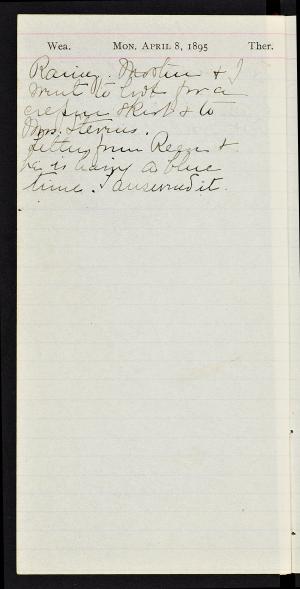 Wea. Mon. April 8, 1895 Ther.
Rainy. & I
went to look for a
crepon skirt & to
Mrs. Stevens.
Letter from &
he is having a blue
time. I answered it.